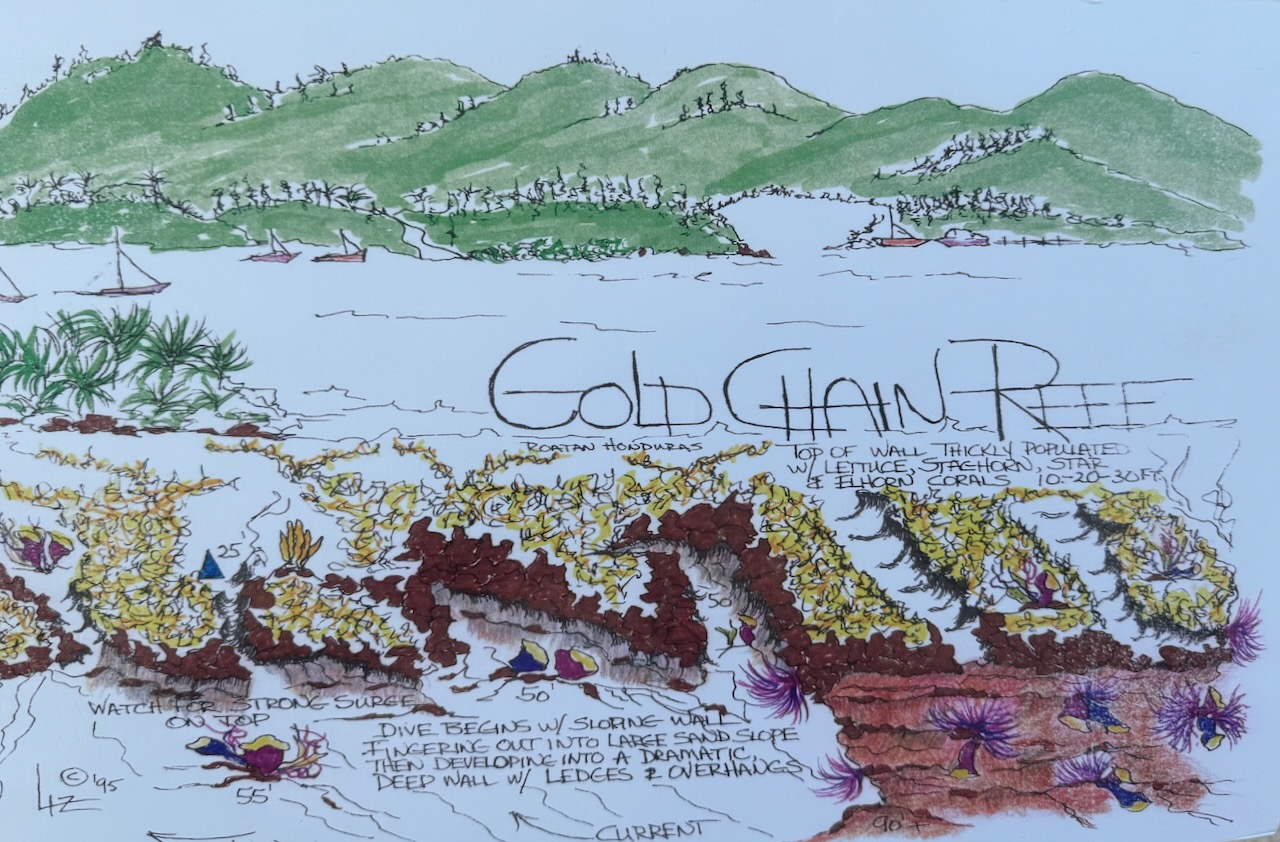 GOLD CHAIN REEF
ROATAN HONDURAS
TOP OF WALL THICKLY POPULATED
W/ LETTUCE, STAGHORN, STAR
& ELHORN CORALS 10-20-30FT.
25'
50'
50'
WATCH FOR STRONG SURGE
ON TOP
DIVE BEGINS W/ SLOPING WALL
FINGERING OUT INTO LARGE SAND SLOPE
THEN DEVELOPING INTO A DRAMATIC,
DEEP WALL W/ LEDGES & OVERHANGS
55'
90'+
CURRENT
© '95
LIZ